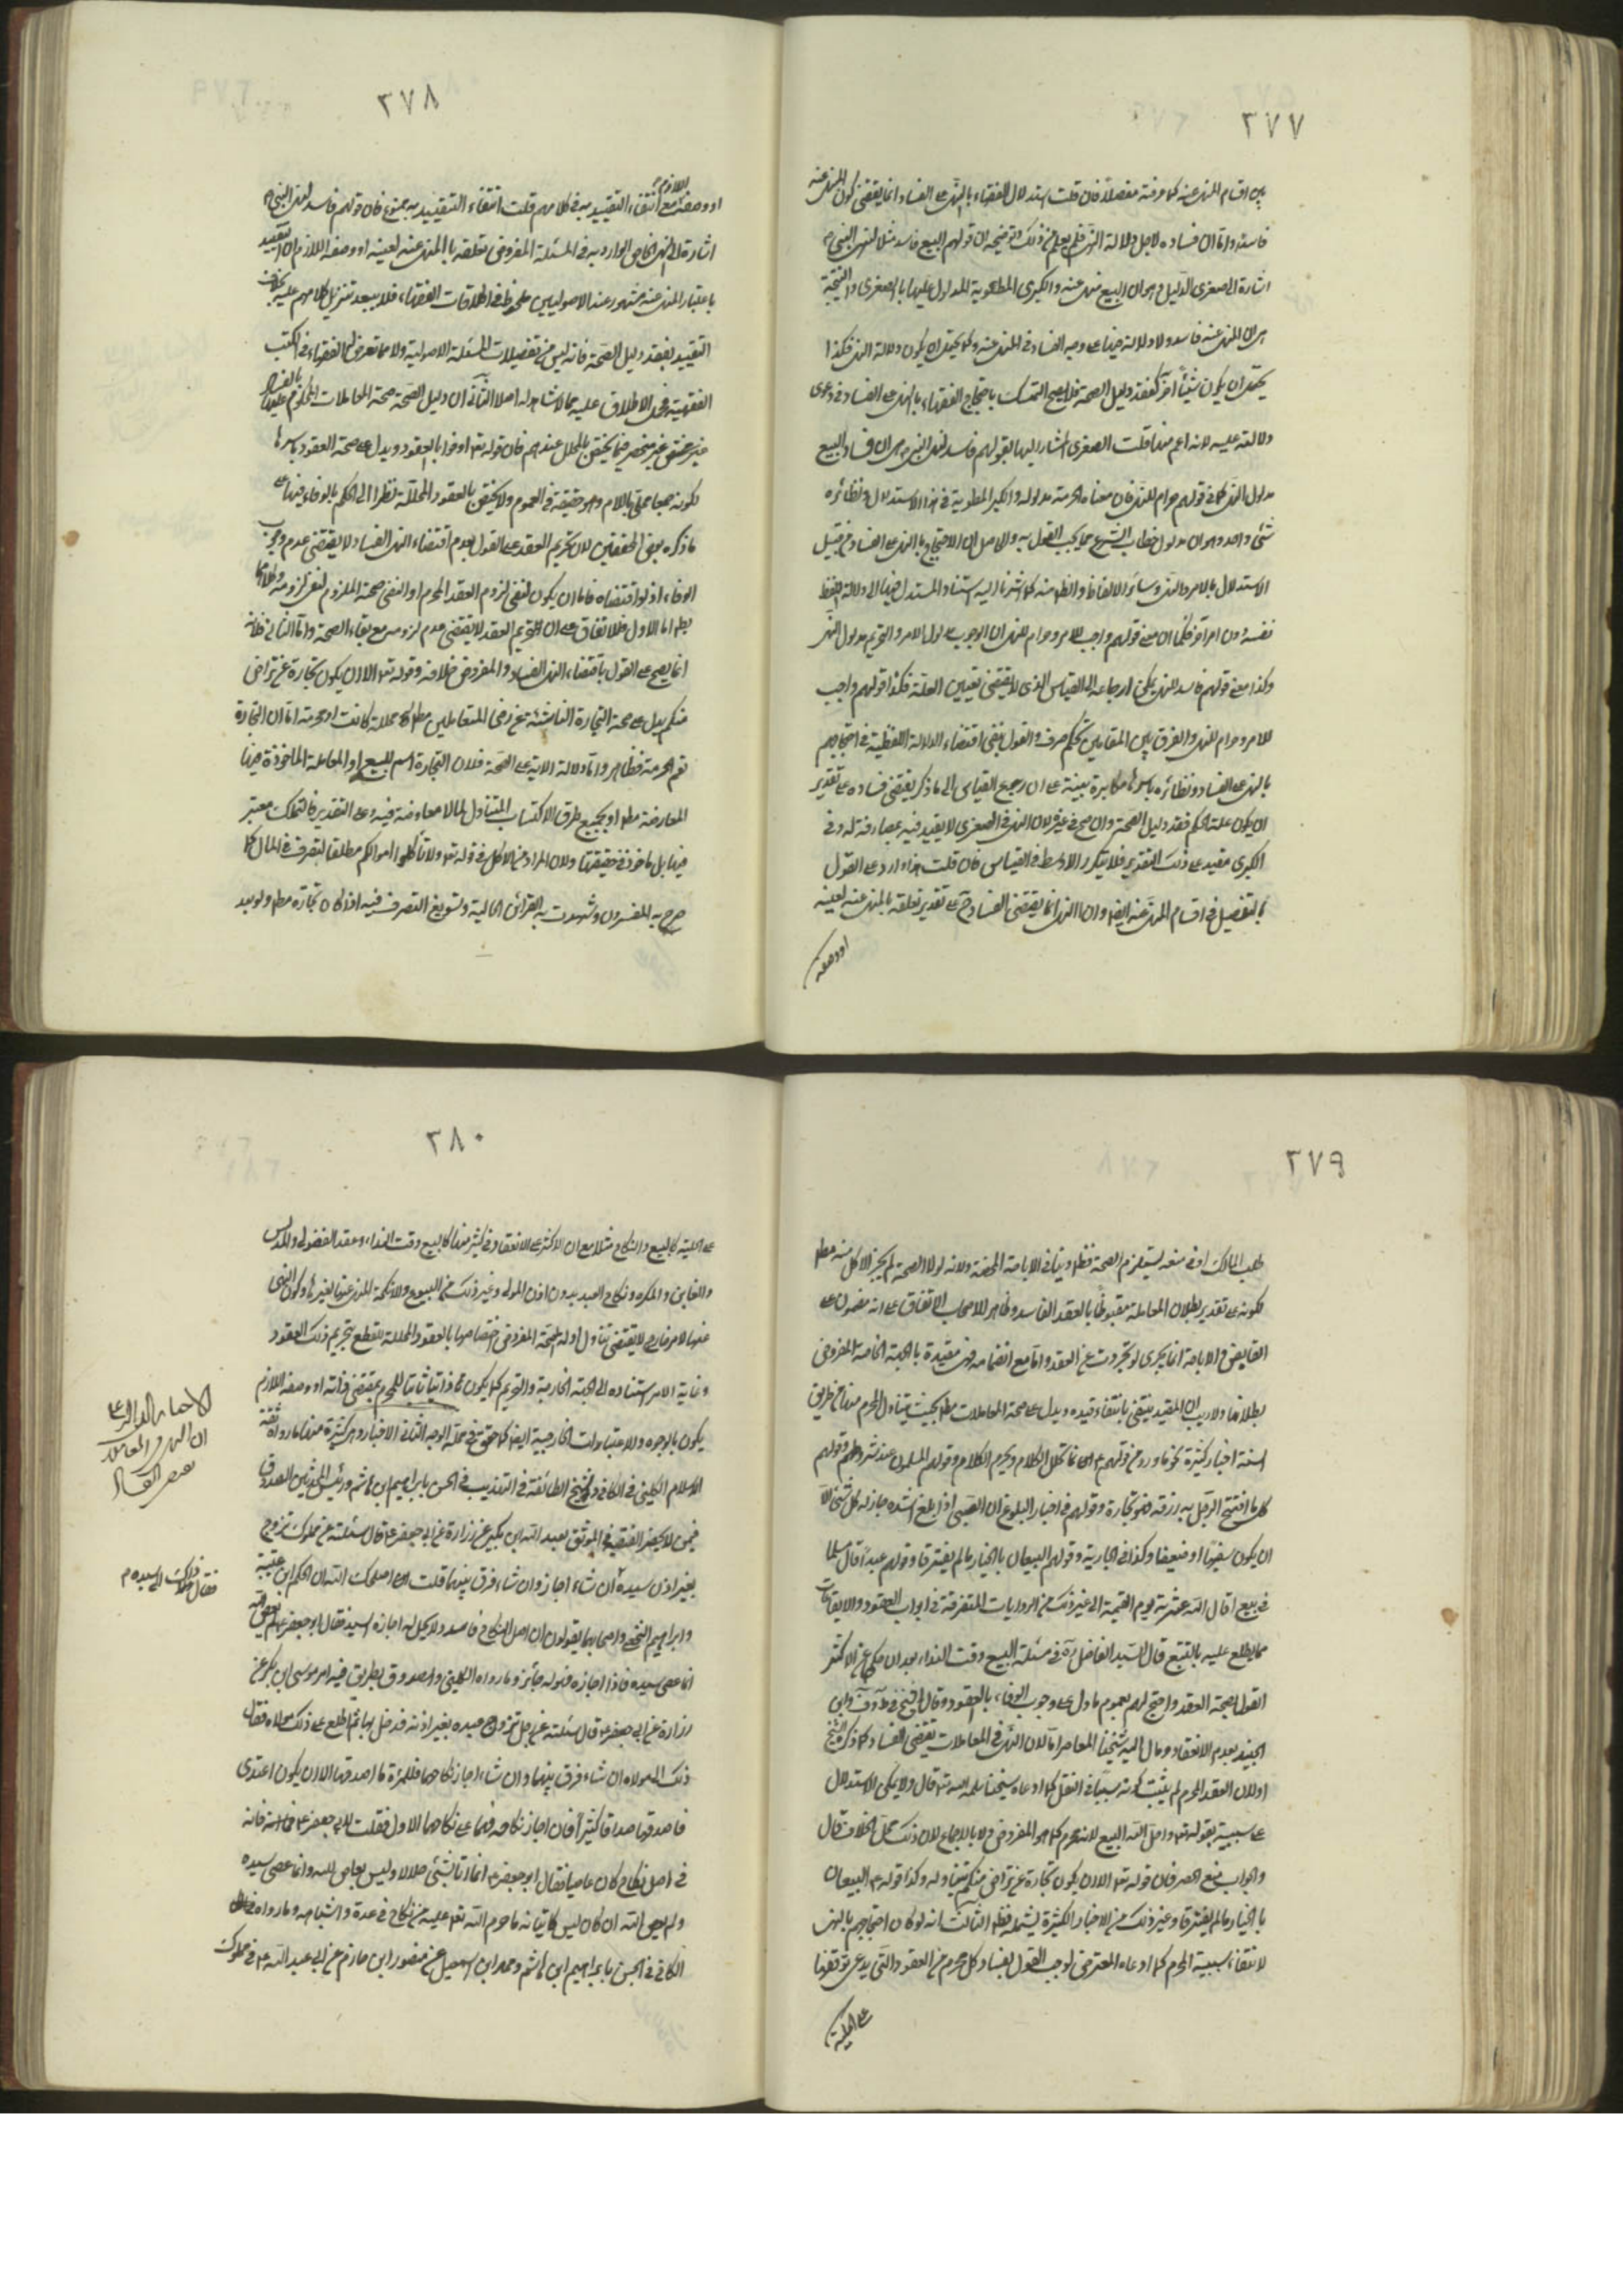 ٣٧٧
بين اقسام المنهى عنه كما عرفته مفصلا فان قلت استدلال الفقهاء بالنهى على الفساد انما يقتضى كون المنهى عنه
فاسدا واما ان فساده لاجل دلالة النهى فلم يعلم من ذلك وتوضيحه ان قولهم البيع فاسد مثلا لنهى النبى ص
اشارة الى صغرى الدليل وهو ان البيع منهى عنه والكبرى المطوية المدلول عليها بالصغرى والنتيجة
هى ان المنهى عنه فاسد ولا دلالة فيها على وجه الفساد فى المنهى عنه وكما يحتمل ان يكون دلالة النهى فكذا
يحتمل ان يكون شيئا آخر كفقد دليل الصحة فلا يصح التمسك باحتجاج الفقهاء بالنهى على الفساد فى دعوى
دلالته عليه لانه اعم منها قلت الصغرى المشار اليها بقولهم فاسد لنهى النبى ص هى ان فساد البيع
مدلول النهى كما فى قولهم حرام للنهى فان معناه الحرمة مدلوله والكبرى المطوية فى هذا الاستدلال ونظائره
شئ واحد وهو ان مدلول خطاب الشرع مما يجب القول به والاصل ان الاحتجاج بالنهى على الفساد من قبيل
الاستدلال بالامر والنهى وسائر الالفاظ والظ منه كما اشرنا اليه استناد المستدل فيها الى دلالة اللفظ
نفسه دون امر آخر فكما ان معنى قولهم واجب للامر وحرام للنهى ان الوجوب مدلول الامر والتحريم مدلول النهى
وكذا معنى قولهم فاسد للنهى يمكن ارجاعه الى القياس الذى لا يقتضى تعيين العلة فكذا قولهم واجب
للامر وحرام للنهى والفرق بين المقامين تحكم صرف والقول بنفى اقتضاء الدلالة اللفظية فى احتجاجهم
بالنهى على الفساد ونظائره باسرها مكابرة بينة على ان رجوع القياس الى ما ذكر يقتضى فساده على تقدير
ان يكون علة الحكم فقد دليل الصحة وان صح فى غيره لان النهى فى الصغرى لا يقيد فيه بمصادفته له وفى
الكبرى مقيد على ذلك التقدير فلا يتكرر الاوسط فى القياس فان قلت هذا وارد على القول
بالتفصيل فى اقسام المنهى عنه ايضا وان النهى انما يقتضى الفساد ح على تقدير تعلقه بالمنهى عنه لعينه
او وصفه
٣٧٨
او وصفه اللازم مع انتفاء التقييد به فى كلامهم قلت انتفاء التقييد به ممنوع فان قولهم فاسد لنهى النبى ص
اشارة الى النهى الخاص الوارد به فى المسئلة المفروض تعلقه بالمنهى عنه لعينه او وصفه اللازم والتقييد
باعتبار المنهى عنه مشهور عند الاصوليين ملحوظ فى اطلاقات الفقهاء فلا يبعد تنزيل كلامهم عليه بخلاف
التقييد بفقد دليل الصحة فانه ليس من تفصيلات المسئلة الاصولية ولا مما تعرض لها الفقهاء فى الكتب
الفقهية وحمل الاطلاق عليه مما لا شاهد له اصلا الثانى ان دليل الصحة صحة المعاملات المحكوم عليها بالفساد
غير مختص غير منحصر فيما يختص بالمحلل عندهم فان قوله تع اوفوا بالعقود ويدل على صحة العقود باسرها
لكونه جمعا محلى باللام وهو حقيقة فى العموم ولا يختص بالعقود المحللة نظرا الى الحكم بالوفاء فيها على
ما ذكره بعض المحققين لان تحريم العقد على القول بعدم اقتضاء النهى الفساد لا يقتضى عدم وجوب
الوفاء اذ لو اقتضاه فاما ان يكون لنفى لزوم العقد المحرم او لنفى صحة الملزوم لنفى لزومه وكلاهما
بط اما الاول فللاتفاق على ان تحريم العقد لا يقتضى عدم لزومه مع بقاء الصحة واما الثانى فلانه
انما يصح على القول باقتضاء النهى الفساد والمفروض خلافه وقوله تع الا ان يكون تجارة عن تراض
منكم يدل على صحة التجارة الناشئة عن رضى المتعاملين مط محللة كانت او محرمة اما ان التجارة
تعم المحرمة فظاهر واما دلالة الآية على الصحة فلان التجارة اسم للبيع او المعاملة الماخوذة فيها
المعاوضة مط او بجميع طرق الاكتساب المتناول لما لا معاوضة فيه وعلى التقدير فالتملك معتبر
فيها بل ماخوذ فى حقيقتها ولان المراد من الاكل فى قوله تع ولا تأكلوا اموالكم مطلق التصرف فى المال كما
صرح به المفسرون وشهدت به القرائن الحالية وتسويغ التصرف فيه اذا كان تجارة مط ولو بعد
٣٧٩
طلب المالك او فى منعه يستلزم الصحة فظ وينافى الاباحة المحضة ولانه لولا الصحة لم يجز الاكل منه مط
لكونه على تقدير بطلان المعاملة مقبوضا بالعقد الفاسد وظاهر الاصحاب الاتفاق على انه مضمون على
القابض والاباحة انما يجرى لو تجردت عن العقد واما مع انضمامه فهى مقيدة بالجهة الخاصة المفروض
بطلانها ولا ريب ان المقيد ينتفى بانتفاء قيده ويدل على صحة المعاملات مط بحيث يتناول المحرم منها من طريق
السنة اخبار كثيرة نحو ما ورد من قولهم ع انما يحلل الكلام ويحرم الكلام وقولهم المسلمون عند شروطهم وقولهم
كل ما افتتح الرجل به رزقه فهو تجارة وقولهم فى اخبار البلوغ ان الصبى اذا بلغ اشده جاز له كل شئ الا
ان يكون سفيها او ضعيفا وكذا فى الجارية وقولهم البيعان بالخيار ما لم يفترقا وقولهم عبد اقال مسلما
فى بيع اقال الله عثرته يوم القيمة الى غير ذلك من الروايات المتفرقة فى ابواب العقود والايقاعات
مما يطلع عليه بالتتبع قال السيد الفاضل ره فى مسئلة البيع وقت النداء بعد ان حكى عن الاكثر
القول بصحة العقد واحتج لهم بعموم ما دل على وجوب الوفاء بالعقود وقال الشيخ فى ط وف وابن
الجنيد بعدم الانعقاد ومال اليه شيخنا المعاصر اما لان النهى فى المعاملات يقتضى الفساد كما ذكره الشيخ
او لان العقد المحرم لم يثبت كونه سببا فى النقل كما ادعاه شيخنا سلمه الله تع قال ولا يمكن الاستدلال
على سببية بقوله تع واحل الله البيع لانه محرم كما هو المفروض ولا بالاجماع لان ذلك محل الخلاف قال
والجواب منع الحصر فان قوله تع الا ان يكون تجارة عن تراض منكم يتناوله وكذا قوله ع البيعان
بالخيار ما لم يفترقا وغير ذلك من الاخبار الكثيرة يشمله فظ الثالث انه لو كان احتجاجهم بالنهى
لانتفاء سببية المحرم كما ادعاه المعترض لوجب القول بفساد كل محرم من العقود والتى يدعى توقفها
على الحلية
٣٨٠
على الحلية كالبيع والنكاح مثلا مع ان الاكثر على الانعقاد فى كثير منها كالبيع وقت النداء وعقد الفضولى والمدلس
والغابن والمكره ونكاح العبد بدون اذن المولى وغير ذلك من البيوع والانكحة المنهى عنها لغيرها وكون النهى
عنها لامر خارج لا يقتضى تناول ادلة الصحة المفروض اختصاصها بالعقود المحللة للقطع بتحريم ذلك العقود
وغاية الامر استناده الى الجهة الخارجية والتحريم كما يكون ذاتيا ثابتا للمحرم بمقتضى ذاته او وصفه اللازم
يكون بالوجوه والاعتبارات الخارجية ايضا كما حقق فى محله الوجه الثانى الاخبار وهى كثيرة منها ما رواه ثقة
الاسلام الكلينى فى الكافى وشيخ الطائفة فى التهذيب فى الحسن بابراهيم ابن هاشم ورئيس المحدثين الصدوق
فيمن لا يحضره الفقيه فى الموثق بعبد الله ابن بكير عن زرارة عن ابى جعفر ع قال سئلته عن مملوك تزوج
بغير اذن سيده
فقال ذلك الى سيده
ان شاء اجاز وان شاء فرق بينهما قلت اصلحك الله ان الحكم ابن عتيبة
وابراهيم النخعى واصحابهما يقولون ان اصل النكاح فاسد ولا يحل له اجازة السيد فقال ابو جعفر ع انه لم يعص الله
انما عصى سيده فاذا اجازه فهو له جائز وما رواه الكلينى والصدوق بطريق فيه موسى ابن بكر عن
زرارة عن ابى جعفر ع قال سئلته عن رجل تزوج عبده بغير اذنه فدخل بها ثم اطلع على ذلك مولاه فقال
ذلك الى مولاه ان شاء فرق بينهما وان شاء اجاز نكاحهما فللمرئة ما اصدقها الا ان يكون اعتدى
فاصدقها صداقا كثيرا فان اجاز نكاحه فهما على نكاحهما الاول فقلت لابى جعفر ع فانه
فى اصل نكاح كان عاصيا فقال ابو جعفر ع انما اتى شيئا حلالا وليس بعاص لله وانما عصى سيده
ولم يعص الله ان كان ليس كاتيانه ما حرم الله تع عليه من نكاح فى عدة واشباهه وما رواه فى
الكافى فى الحسن بابراهيم ابن هاشم ومحمد ابن اسمعيل عن منصور ابن حازم عن ابى عبد الله ع فى مملوك
الاخبار الدالة على
ان النهى فى المعاملات